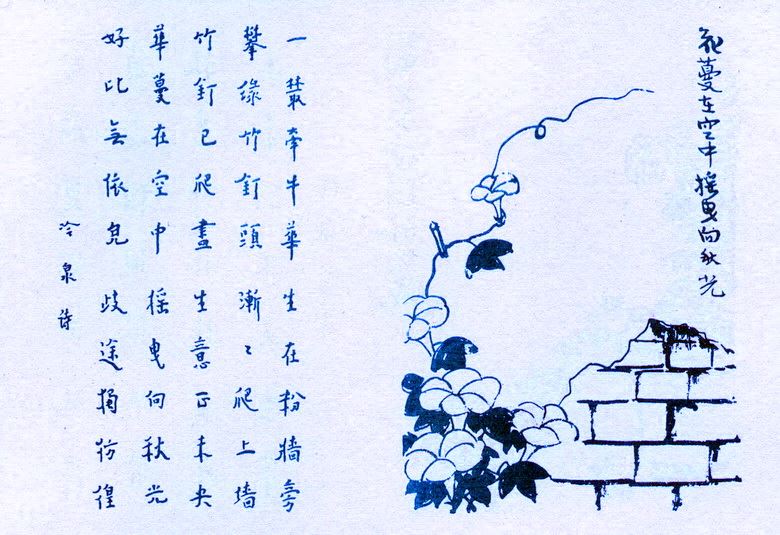 花蔓在空中摇曳向秋光
一叢牽牛華生在粉牆旁
攀緣竹釘頭漸〻爬上墙
竹釘已爬盡生意正未央
華蔓在空中摇曳向秋光
好比無依兒歧途獨彷徨
冷泉詩